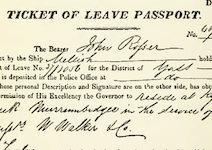 TICKET OF LEAVE PASSPORT.
No.
The Bearer John Roper
by the Ship Medway hold
of Leave No. for the District of Yass
is deposited in the Police Office at Do
whose personal Description and Signature are on the other side, has ob
ermission of His Excellency the Governor to reside at
Murrumbidgee in the service of
W Walker & Co.